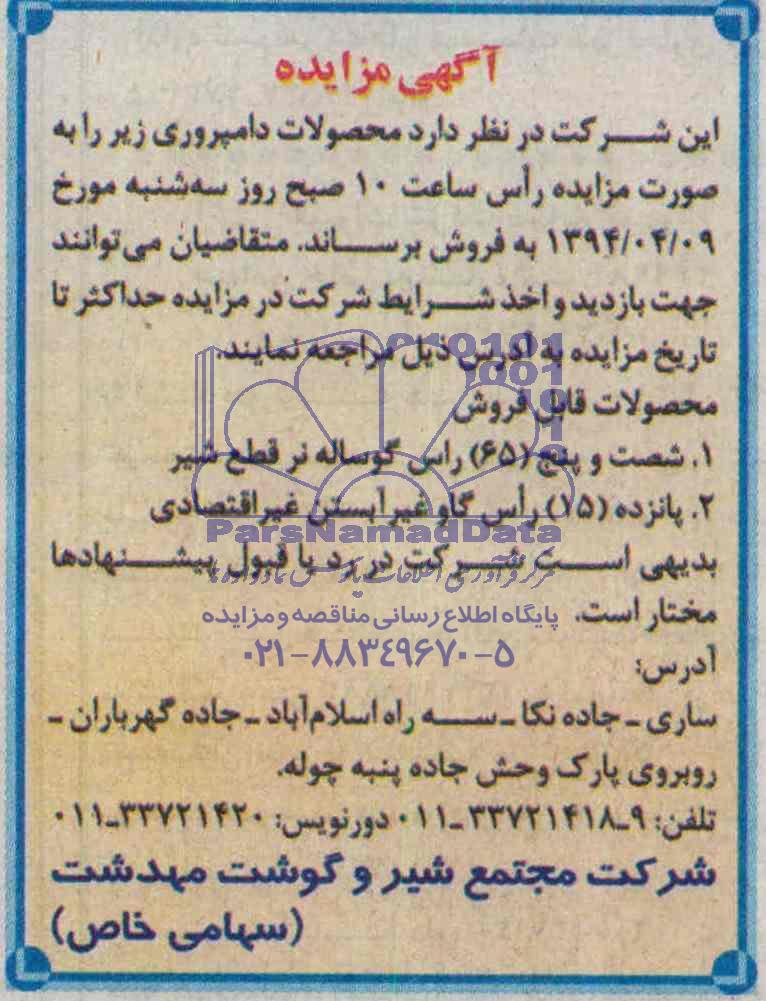 آگهی مزایده
این شرکت در نظر دارد محصولات دامپروری زیر را به
صورت مزایده رأس ساعت ۱۰ صبح روز سه‌شنبه مورخ
۱۳۹۴/۰۴/۰۹ به فروش برساند. متقاضیان می‌توانند
جهت بازدید و اخذ شرایط شرکت در مزایده حداکثر تا
تاریخ مزایده به آدرس ذیل مراجعه نمایند.
محصولات قابل فروش
۱. شصت و پنج (۶۵) راس گوساله نر قطع شیر
۲. پانزده (۱۵) رأس گاو غیرآبستن غیراقتصادی
ParsNamadData
بدیهی است شرکت در رد یا قبول پیشنهادها
مختار است.
پایگاه اطلاع رسانی مناقصه و مزایده
۰۲۱-۸۸۳۴۹۶۷۰-۵
آدرس:
ساری ـ جاده نکا ـ سه راه اسلام‌آباد ـ جاده گهرباران ـ
روبروی پارک وحش جاده پنبه چوله.
تلفن: ۹ـ۳۳۷۲۱۴۱۸ـ۰۱۱ دورنویس: ۳۳۷۲۱۴۲۰ـ۰۱۱
شرکت مجتمع شیر و گوشت مهدشت
(سهامی خاص)